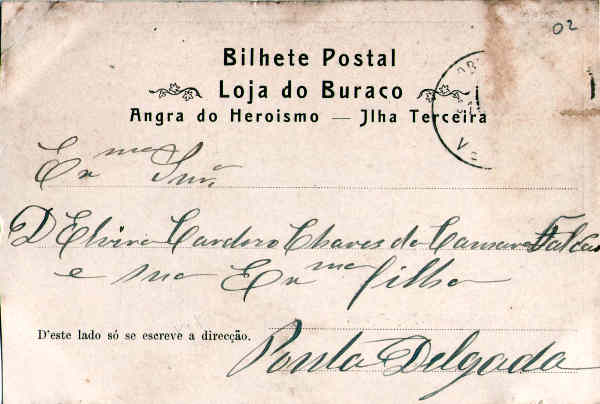 02
Bilhete Postal
Loja do Buraco
Angra do Heroismo — Jlha Terceira
Exma Snrª
D Elvira Cardozo Chaves da Camara Falcão
e sua Exma filha
D'este lado só se escreve a direcção.
Ponta Delgada